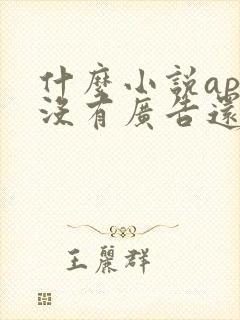 什麼小說ap
沒有廣告還
王麗群